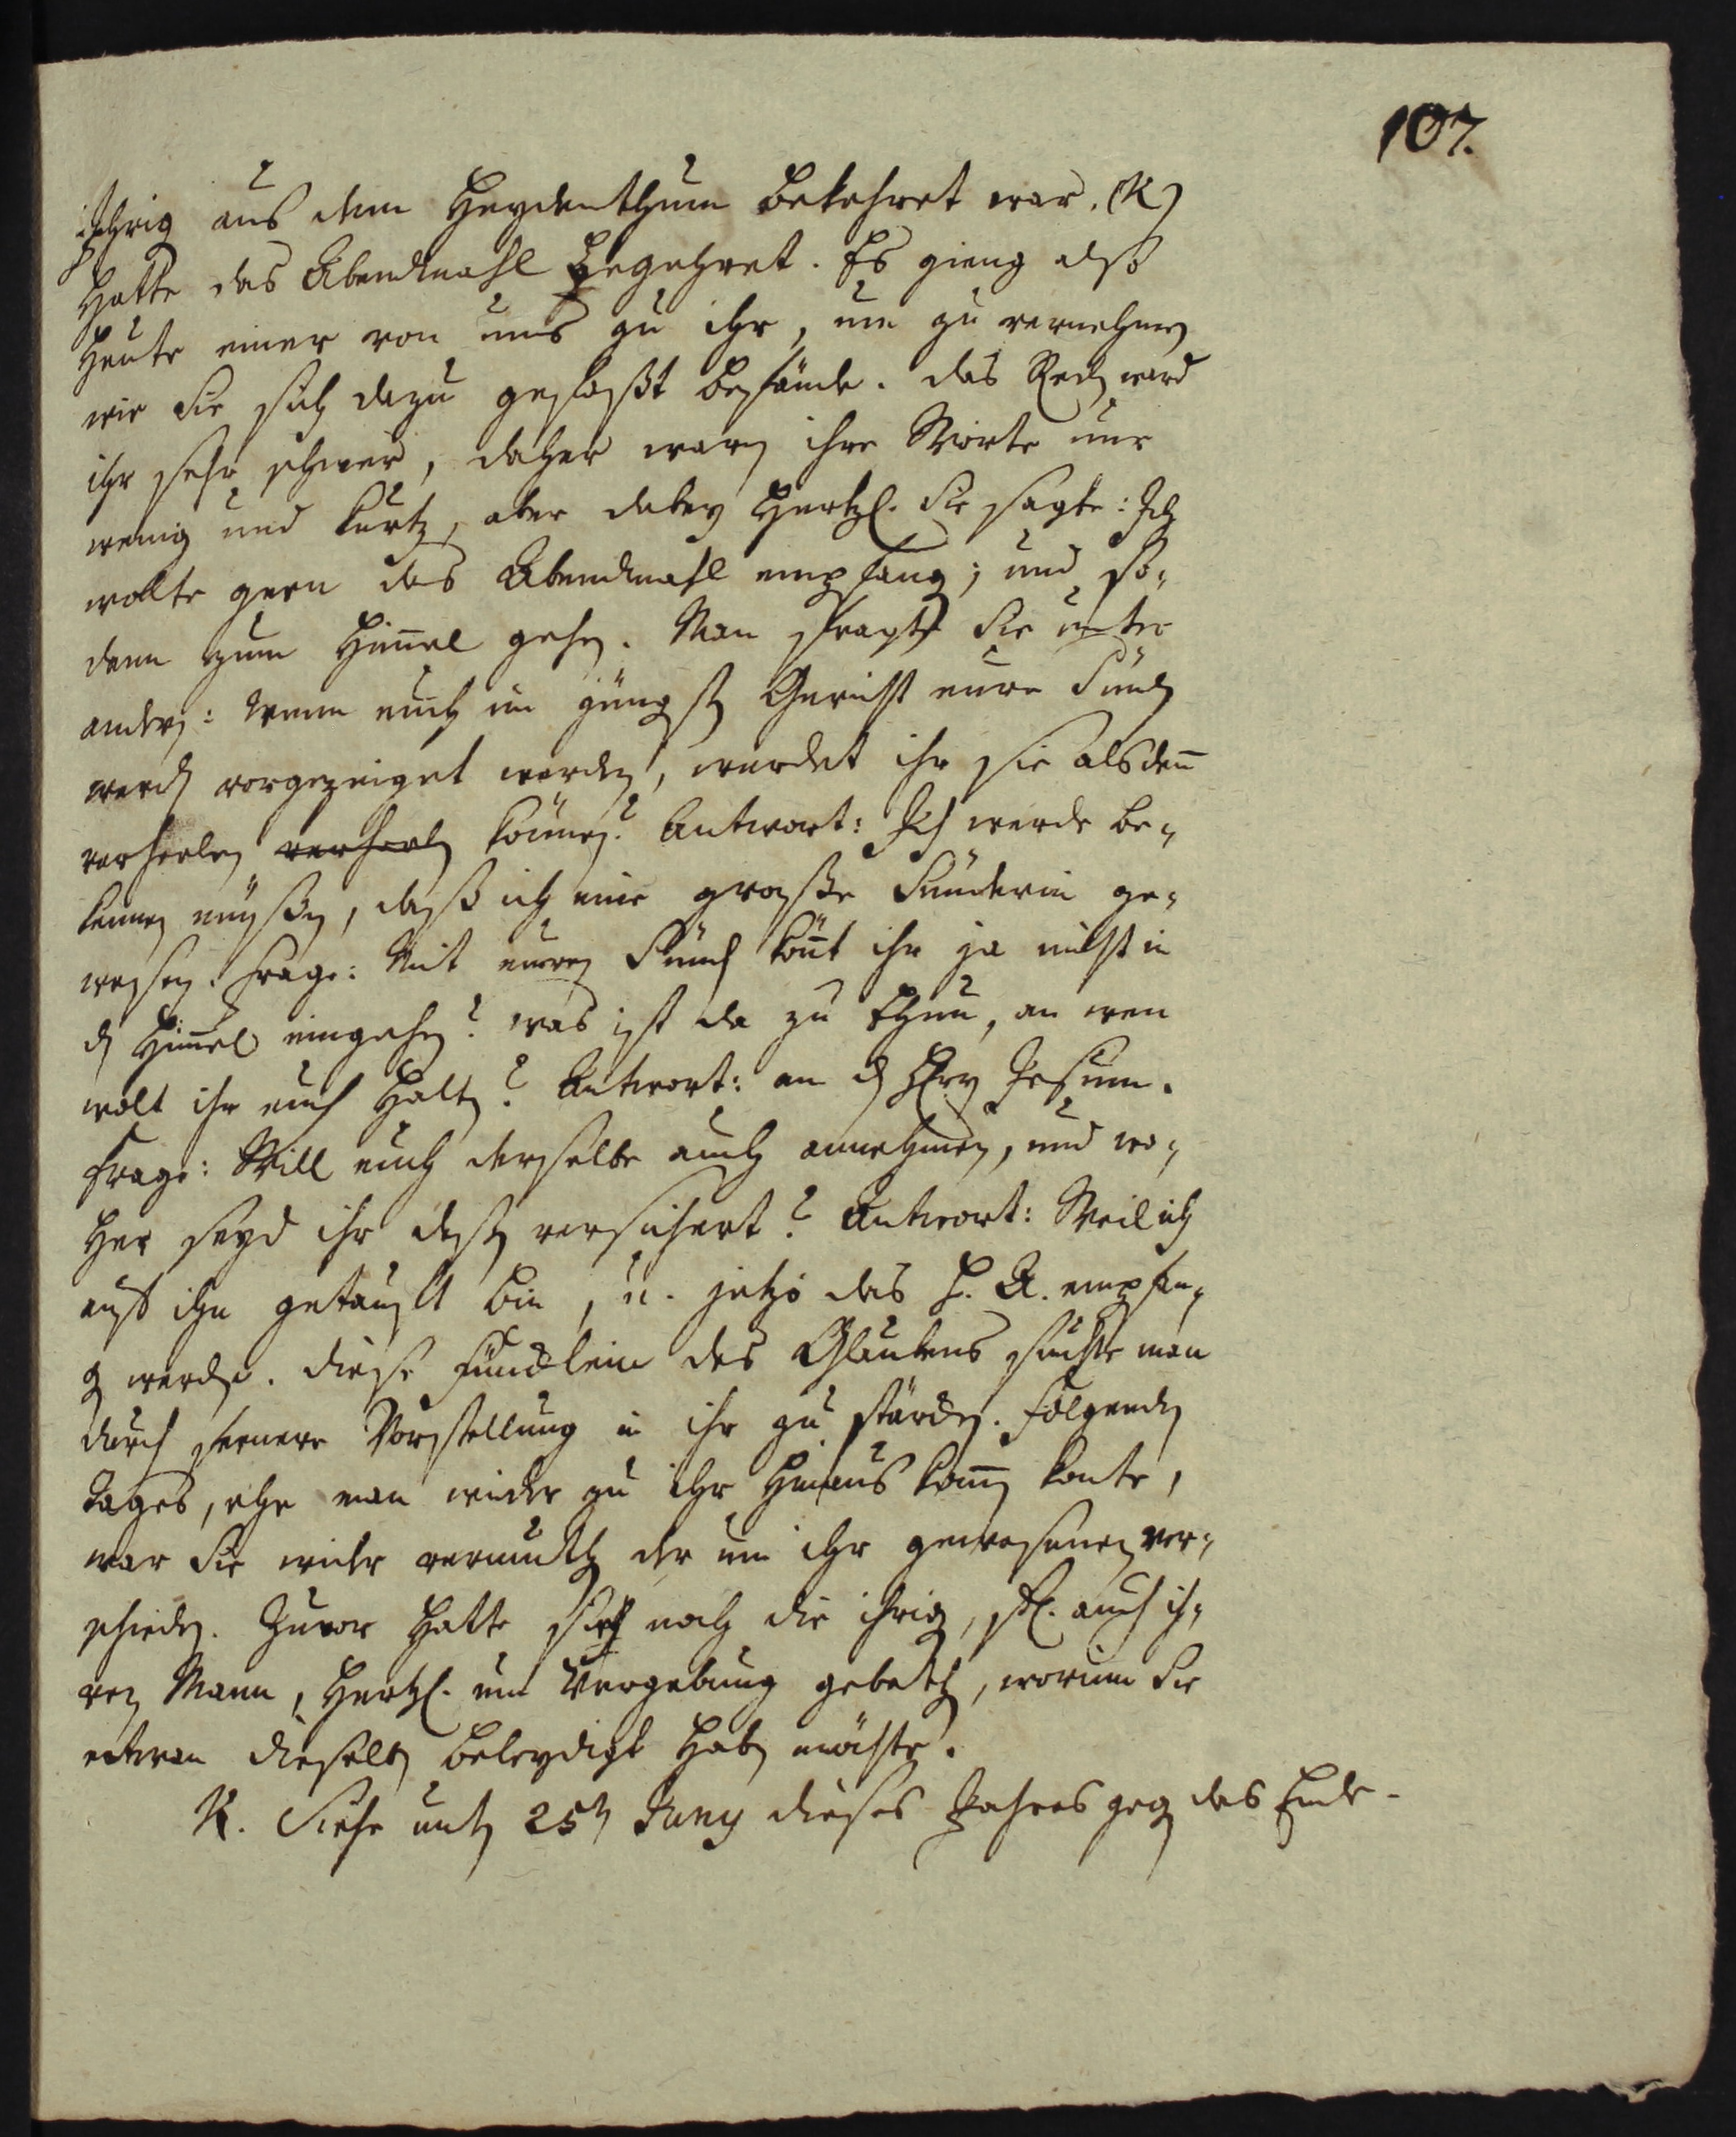 107.
jährig aus dem Heydenthum bekehret war. (K)
hatte das Abendmahl begehret. Es gieng also
heute einer von uns zu ihr, um zu vernehmen
wie Sie sich dazu gefaßt befände. das Reden ward
ihr sehr schwer, daher waren ihre Worte nur
wenig und kurtz, aber dabey hertzl. Sie sagte: Ich
wollte gern das Abendmahl empfangen; und so-
denn zum Him̄el gehen. Man fragte Sie unter
andern: Wenn euch im jüngsten Gericht eure Sünden
werden vorgezeiget werden, werdet ihr sie alsden̄
verheelen verheelen können? Antwort: Ich werde be-
kennen müßen, daß ich eine große Sünderin ge-
wesen. Frage: Mit euren Sünden kön̄t ihr ja nicht in
den Him̄el eingehen? was ist da zu thun, an wen
wolt ihr euch halten? Antwort: an den Herrn Jesum.
Frage: Will euch derselbe auch annehmen, und wo-
her seyd ihr deßen versichert? Antwort: Weil ich
auf ihn getauft bin, u. jetzo das H. A. empfan-
gen werde. diese Füncklein des Glaubens suchte man
durch fernere Vorstellung in ihr zu stärcken. Folgenden
Tages, ehe man wieder zu ihr hinaus kom̄en konte,
war Sie wieder vermuthen der um ihr gewesenen ver-
schieden. Zuvor hatte sie noch die ihrigen, sl. auch ih-
ren Mann, hertzl. um Vergebung gebethen, worinn Sie
etwan dieselben beleydigt haben möchte.
K. Siehe unten 25ten Juny dieses Jahres gegen das Ende.